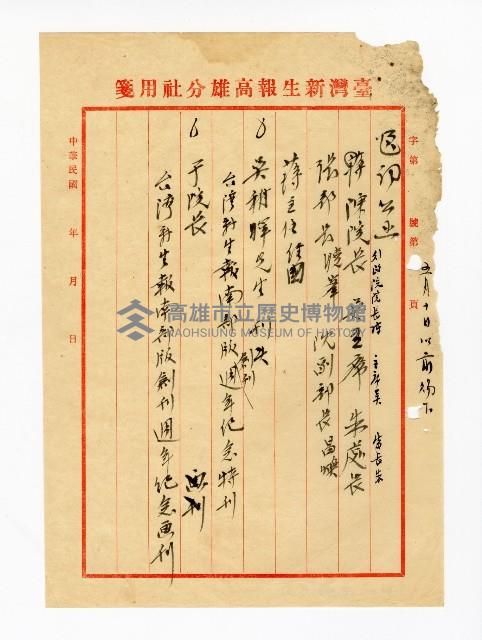 臺灣新生報高雄分社用箋
字第 號第 頁
五月十日以前
行政院院長陳 主席吳
陳院長 吳主席 朱處長
張部長 阮副部長昌煥
蔣主任經國
吳朝暉先生
台灣新生報南部版週年紀念特刊
創刊
于院長 畫刊
台灣新生報南部版創刊週年紀念畫刊
中華民國 年 月 日
高雄市立歷史博物館
KAOHSIUNG MUSEUM OF HISTORY